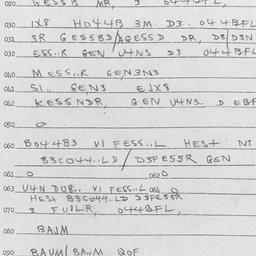 020 GESSB MR, 3 044BFL,
030 1X8 H044B 3M D3.. 044BFL
031 3R GESSBD/AGESSD DR, D3/D3N
032 ESS..R GEN U4NS D3 044BFL
040 MESS..R GEN3N3
041 SL.. GEN3 EJX8
042 KESSNDR, GEN U4NS. D EBF
050 O
060 B044B3 VI FESS..L HEST NI
B3C044..LD / D3FESSR GEN
061 O 0620
063 U4N DUB.. VI FESS..L 064 O
HEST B3C044..LD D3FESSR
070 3 FULLR, 044BFL,
080 BAJM
090 BAUM/BAUM QOF